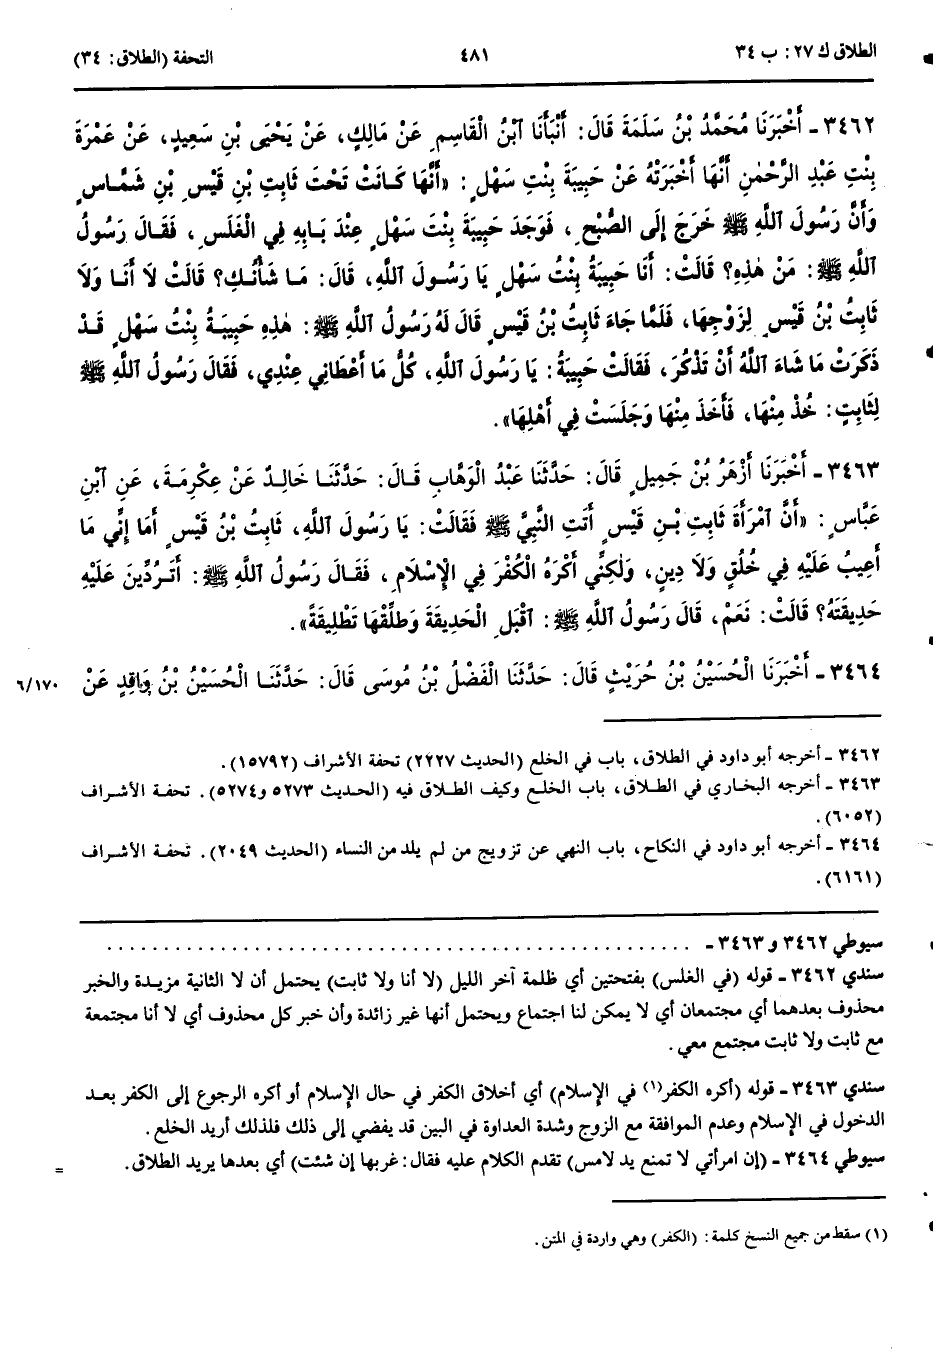 الطلاق ك ٢٧: ب ٣٤
٤٨١
التحفة (الطلاق: ٣٤)
٣٤٦٢ - أَخْبَرَنَا مُحَمَّدُ بْنُ سَلَمَةَ قَالَ: أَنْبَأَنَا ٱبْنُ الْقَاسِمِ عَنْ مَالِكٍ، عَنْ يَحْيَى بْنِ سَعِيدٍ، عَنْ عَمْرَةَ
بِنْتِ عَبْدِ الرَّحْمٰنِ أَنَّهَا أَخْبَرَتْهُ عَنْ حَبِيبَةَ بِنْتِ سَهْلٍ: «أَنَّهَا كَانَتْ تَحْتَ ثَابِتِ بْنِ قَيْسِ بْنِ شَمَّاسٍ
وَأَنَّ رَسُولَ ٱللَّهِ ﷺ خَرَجَ إِلَى الصُّبْحِ، فَوَجَدَ حَبِيبَةَ بِنْتَ سَهْلٍ عِنْدَ بَابِهِ فِي الْغَلَسِ، فَقَالَ رَسُولُ
ٱللَّهِ ﷺ: مَنْ هٰذِهِ؟ قَالَتْ: أَنَا حَبِيبَةُ بِنْتُ سَهْلٍ يَا رَسُولَ ٱللَّهِ، قَالَ: مَا شَأْنُكِ؟ قَالَتْ لَا أَنَا وَلَا
ثَابِتُ بْنُ قَيْسٍ لِزَوْجِهَا، فَلَمَّا جَاءَ ثَابِتُ بْنُ قَيْسٍ قَالَ لَهُ رَسُولُ ٱللَّهِ ﷺ: هٰذِهِ حَبِيبَةُ بِنْتُ سَهْلٍ قَدْ
ذَكَرَتْ مَا شَاءَ ٱللَّهُ أَنْ تَذْكُرَ، فَقَالَتْ حَبِيبَةُ: يَا رَسُولَ ٱللَّهِ، كُلُّ مَا أَعْطَانِي عِنْدِي، فَقَالَ رَسُولُ ٱللَّهِ ﷺ
لِثَابِتٍ: خُذْ مِنْهَا، فَأَخَذَ مِنْهَا وَجَلَسَتْ فِي أَهْلِهَا».
٣٤٦٣ - أَخْبَرَنَا أَزْهَرُ بْنُ جَمِيلٍ قَالَ: حَدَّثَنَا عَبْدُ الْوَهَّابِ قَالَ: حَدَّثَنَا خَالِدٌ عَنْ عِكْرِمَةَ، عَنِ ٱبْنِ
عَبَّاسٍ: «أَنَّ ٱمْرَأَةَ ثَابِتِ بْنِ قَيْسٍ أَتَتِ النَّبِيَّ ﷺ فَقَالَتْ: يَا رَسُولَ اللَّهِ، ثَابِتُ بْنُ قَيْسٍ أَمَا إِنِّي مَا
أَعِيبُ عَلَيْهِ فِي خُلُقٍ وَلَا دِينٍ، وَلٰكِنِّي أَكْرَهُ الْكُفْرَ فِي الْإِسْلَامِ، فَقَالَ رَسُولُ اللَّهِ ﷺ: أَتَرُدِّينَ عَلَيْهِ
حَدِيقَتَهُ؟ قَالَتْ: نَعَمْ، قَالَ رَسُولُ اللَّهِ ﷺ: ٱقْبَلِ الْحَدِيقَةَ وَطَلِّقْهَا تَطْلِيقَةً».
٣٤٦٤ - أَخْبَرَنَا الْحُسَيْنُ بْنُ حُرَيْثٍ قَالَ: حَدَّثَنَا الْفَضْلُ بْنُ مُوسَى قَالَ: حَدَّثَنَا الْحُسَيْنُ بْنُ وَاقِدٍ عَنْ
٦/١٧٠
٣٤٦٢ - أخرجه أبو داود في الطلاق، باب في الخلع (الحديث ٢٢٢٧) تحفة الأشراف (١٥٧٩٢).
٣٤٦٣ - أخرجه البخاري في الطلاق، باب الخلع وكيف الطلاق فيه (الحديث ٥٢٧٣ و٥٢٧٤). تحفة الأشراف
(٦٠٥٢).
٣٤٦٤ - أخرجه أبو داود في النكاح، باب النهي عن تزويج من لم يلد من النساء (الحديث ٢٠٤٩). تحفة الأشراف
(٦١٦١).
سيوطي ٣٤٦٢ و٣٤٦٣ - ....................................................
سندي ٣٤٦٢ - قوله (في الغلس) بفتحتين أي ظلمة آخر الليل (لا أنا ولا ثابت) يحتمل أن لا الثانية مزيدة والخبر
محذوف بعدهما أي مجتمعان أي لا يمكن لنا اجتماع ويحتمل أنها غير زائدة وأن خبر كل محذوف أي لا أنا مجتمعة
مع ثابت ولا ثابت مجتمع معي.
سندي ٣٤٦٣ - قوله (أكره الكفر(١) في الإسلام) أي أخلاق الكفر في حال الإسلام أو أكره الرجوع إلى الكفر بعد
الدخول في الإسلام وعدم الموافقة مع الزوج وشدة العداوة في البين قد يفضي إلى ذلك فلذلك أريد الخلع.
سيوطي ٣٤٦٤ - (إن امرأتي لا تمنع يد لامس) تقدم الكلام عليه فقال: غربها إن شئت) أي بعدها يريد الطلاق.
=
(١) سقط من جميع النسخ كلمة: (الكفر) وهي واردة في المتن.